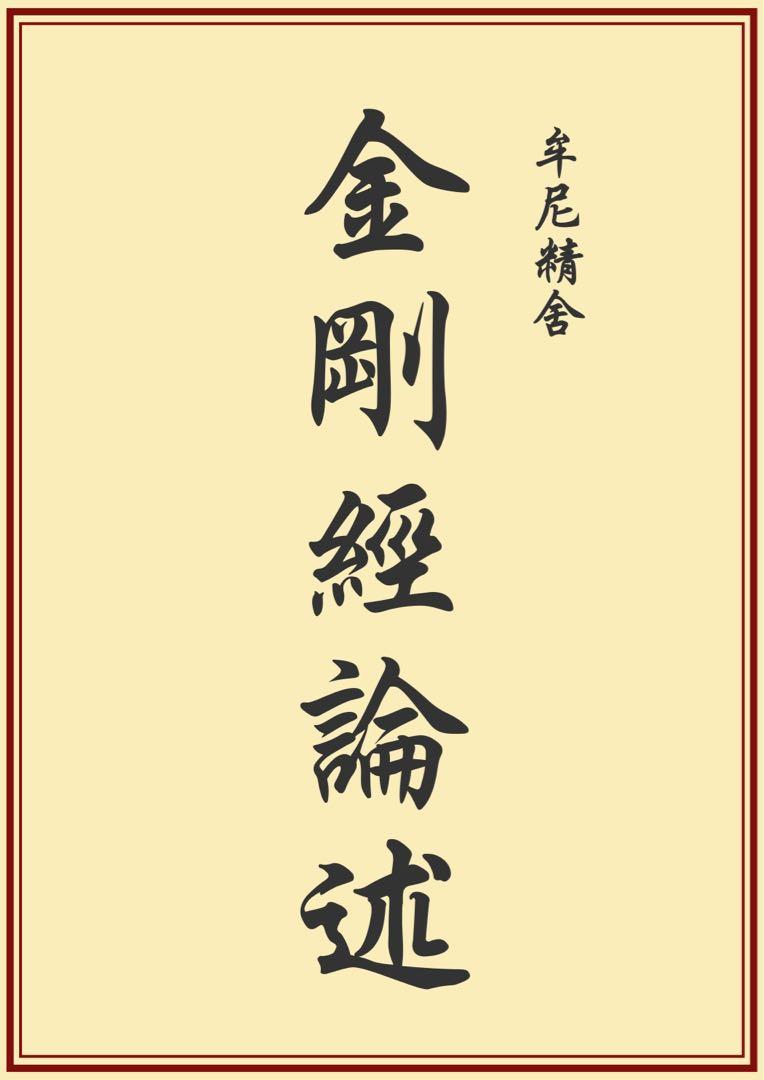 牟尼精舍
金剛經論述